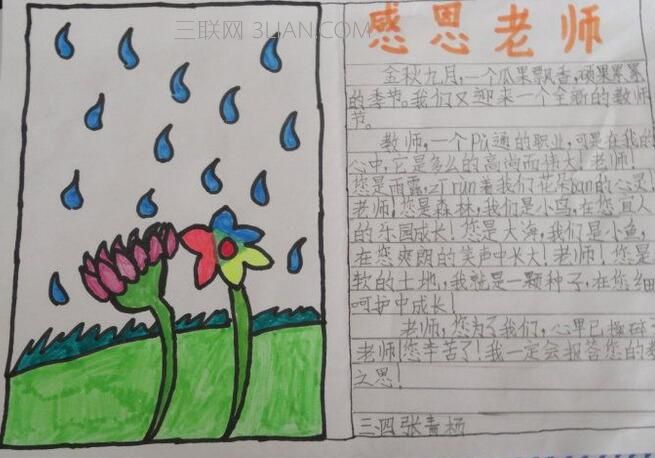 三联网 3LIAN.COM
感恩老师
金秋九月,一个瓜果飘香,硕果累累
的季节。我们又迎来一个全新的教师
节。
教师,一个Pǔ通的职业,可是在我的
心中,它是多么的高尚而伟大!老师!
您是雨露,zī run着我们花朵ban的心灵!
老师!您是森林,我们是小鸟,在您宜人
的乐园成长!您是大海,我们是小鱼,
在您爽朗的笑声中长大!老师!您是
软的土地,我就是一颗种子,在您细
呵护中成长!
老师,您为了我们,心早已操碎
老师!您辛苦了!我一定会报答您的教
之恩!
三.四张青杨